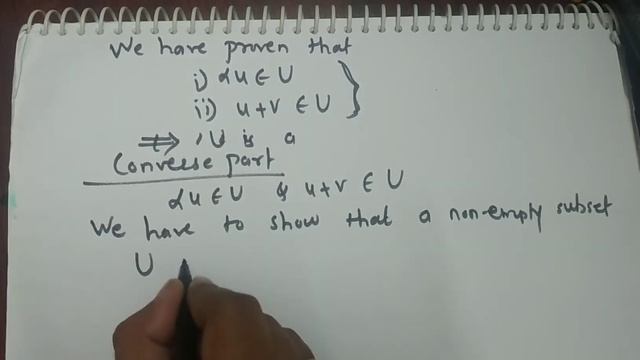 We have proven that
i) αu ∈ U
ii) u+v ∈ U
⇒ , U is a
Converse part
αu ∈ U & u+v ∈ U
We have to show that a non-empty subset
U